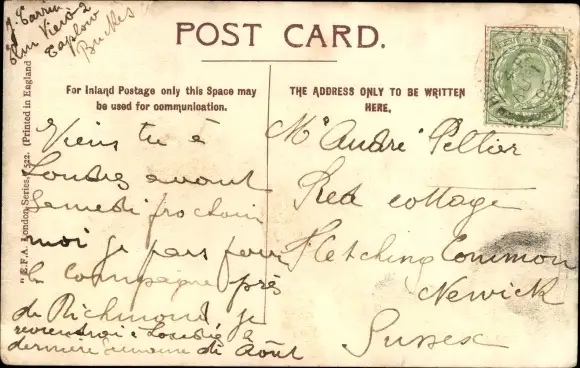 J. Carren
Elm View 2
Taplow
Buckles
POST CARD.
For Inland Postage only this Space may
be used for communication.
THE ADDRESS ONLY TO BE WRITTEN
HERE.
"E.F.A. London, Series, 1522. (Printed in England
Viens tu à
Londres avant
Samedi prochain
moi je pars pour
la Campagne près
de Richmond, je
reviendrai à Londres la
dernière Semaine de Août
Mr André Pellier
Red cottage
Fletching Common
Newick
Sussex